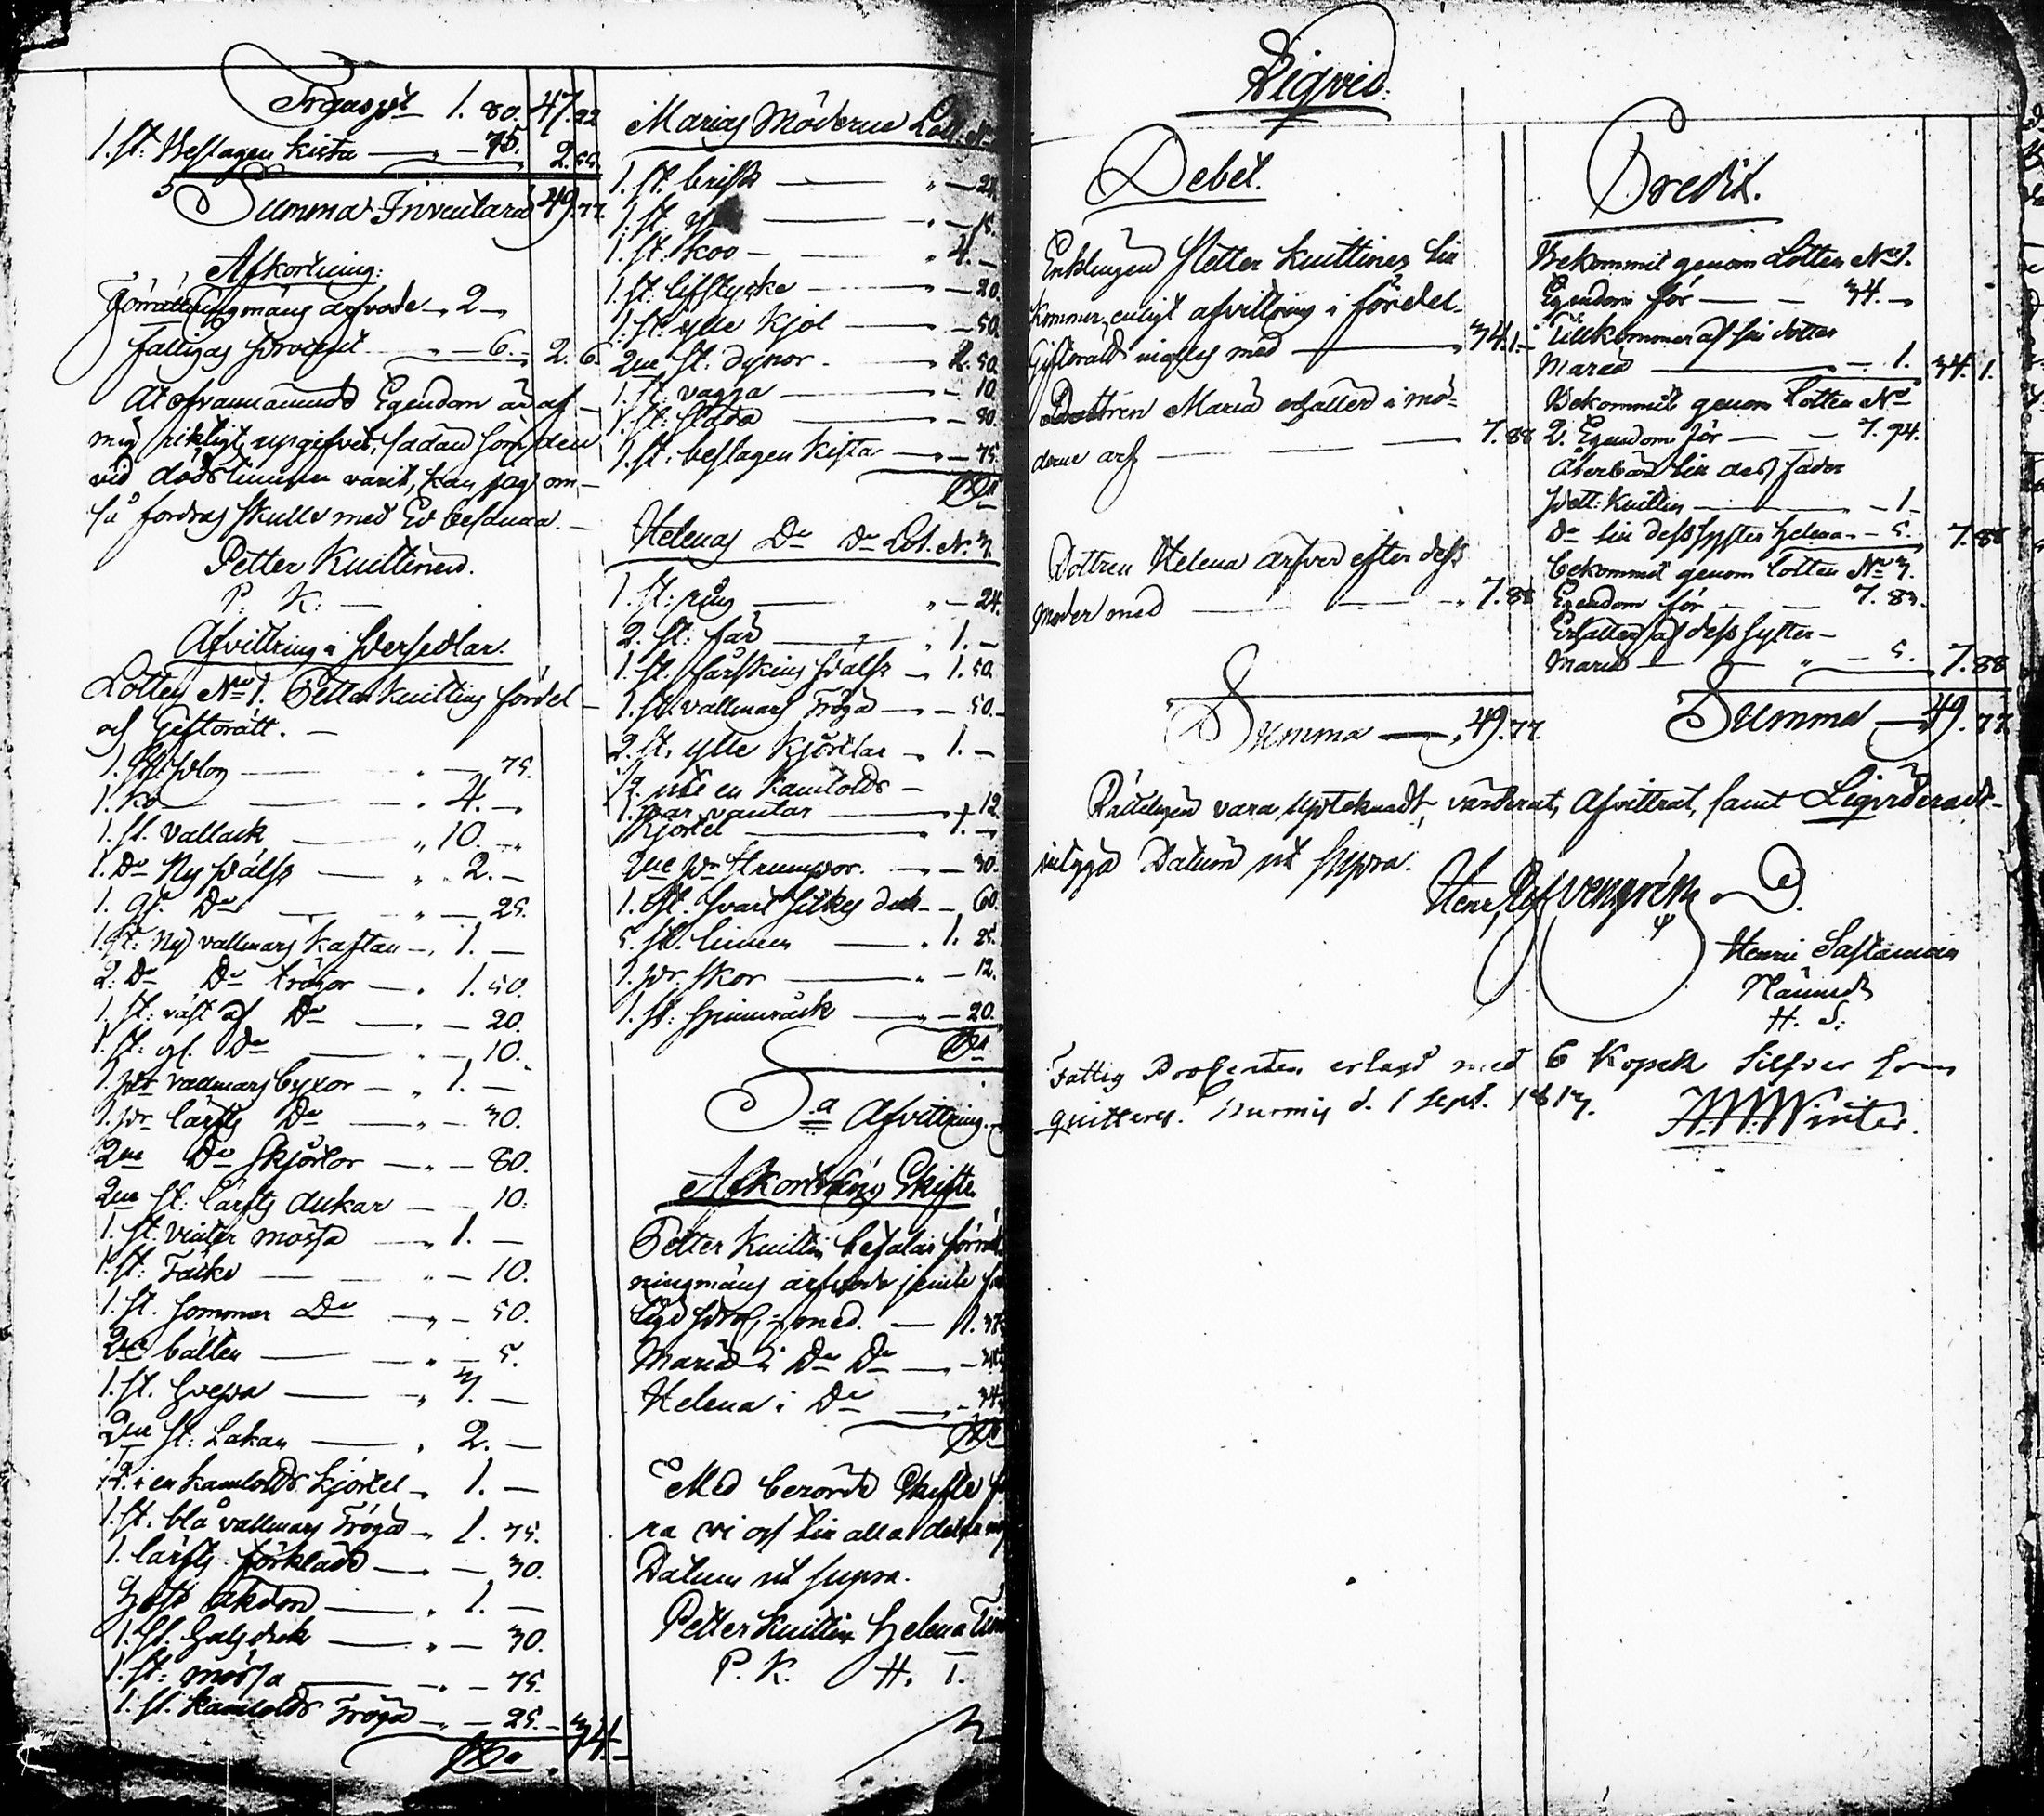 Transpt 1. 80. 47. 22
1. st: Beslagen kista — 75. 2. 55.
Summa Inventarii 49. 77.
Afkortning:
Förrättningsmäns arfvode 2 —
fattigas procent — 6. 2. 6.
At ofvannämnde Egendom är af
mig riktigt upgifvet, sådan som den
vid dödstimman varit, kan jag om
så fordras skulle med Ed besanna.
Petter Kuittinen.
P. K.
Afvittring i Persedlar.
Lotten No 1. Petter Kuittins fördel
och Giftorätt.
1. st. plog — 75.
1. Ko — 4. —
1. st. vallack — 10. —
1. Do Ny päls — 2. —
1. gl. Do — 25.
1. st: Ny vallmars kaftan — 1. —
2. Do Do tröjor — 1. 50.
1. st: väst af Do — 20.
1. st: gl. Do — 10.
1. par vallmars byxor — 1. —
1. pr lärfts Do — 30.
2ne Do skjortor — 80.
2ne st: lärfts dukar — 10.
1. st. vinter mössa — 1. —
1. st: Do — 10.
1. st. sommar Do — 50.
2ne bälten — 5.
1. st. — 3. —
2ne st: Lakan — 2. —
i en kamlolds kjortel — 1. —
1. st. blå vallmars Tröja — 1. 75.
1. lärfts förkläde — 30.
Häst Akdon — 1. —
1. st. halsduk — 30.
1. st: mössa — 75.
1. st. kamlolds Tröja — 25. — 34. —
Marias Möderne Lott. No
1. st. — 24.
1. st. — 15.
1. st: koo — 4. —
1. st: lifstycke — 20.
1. st: ylle kjol — 50.
2ne st. dynor — 2. 50.
1. st. vagga — 10.
1. st: — 80.
1. st: beslagen kista — 75.
Helenas Do Do Lot. No 3.
1. st: — 24.
2. st: får — 1. —
1. st. fårskins päls — 1. 50.
1. st. vallmars Tröja — 50. —
2. st. ylle kjortlar — 1. —
uti en kamlolds
1. par vantar — 12.
kjortel — 1. —
2ne pr strumpor — 30.
1. st. svart silkes duk — 60.
5. st. linnen — 1. 25.
1. pr. skor — 12.
1. st: spinnråck — 20.
Sa Afvittring.
Afkortning Skifte.
Petter Kuittin betalar förrätt
ningmäns arfvode jemte fat
tigs proc: med — 1. 37
Maria i Do Do — 34
Helena i Do — 34
Med berörde skifte
ra vi oss till alla delar
Datum ut supra.
Petter Kuittin Helena
P. K. H. T.
Liqvid:
Debet.
Enklingen Petter Kuittinen till
kommer enligt afvittring i fördel
Giftorätt — med — 34. 1.
Dottren Maria erhåller i mö-
derne arf — 7. 88
Dottren Helena ärfver efter dess
moder med — 7. 88
Summa — 49. 77.
Credit.
Bekommit genom Lotten No 1.
Egendom för — 34. —
Tillkommer af sin dotter
Maria — 1. 34. 1.
Bekommit genom Lotten No
2. Egendom för — 7. 94.
Återbär till dess fader
Pett: Kuittin — 1 —
Do till dess syster Helena — 5. 7. 88
bekommit genom Lotten No 3.
Egendom för — 7. 83.
Erhåller af dess syster
Maria — 5. 7. 88
Summa — 49. 77
Rättligen vara upteknadt, värderat, Afvittrat, samt Liqvideradt
intyga Datum ut supra.
Henr.
Henric Sastamoin
Nämnd
H. S.
Fattig Procenten erlagd med 6 Kopek Silfver som
quitteras. Nurmis d. 1 Sept. 1817.
Winter.